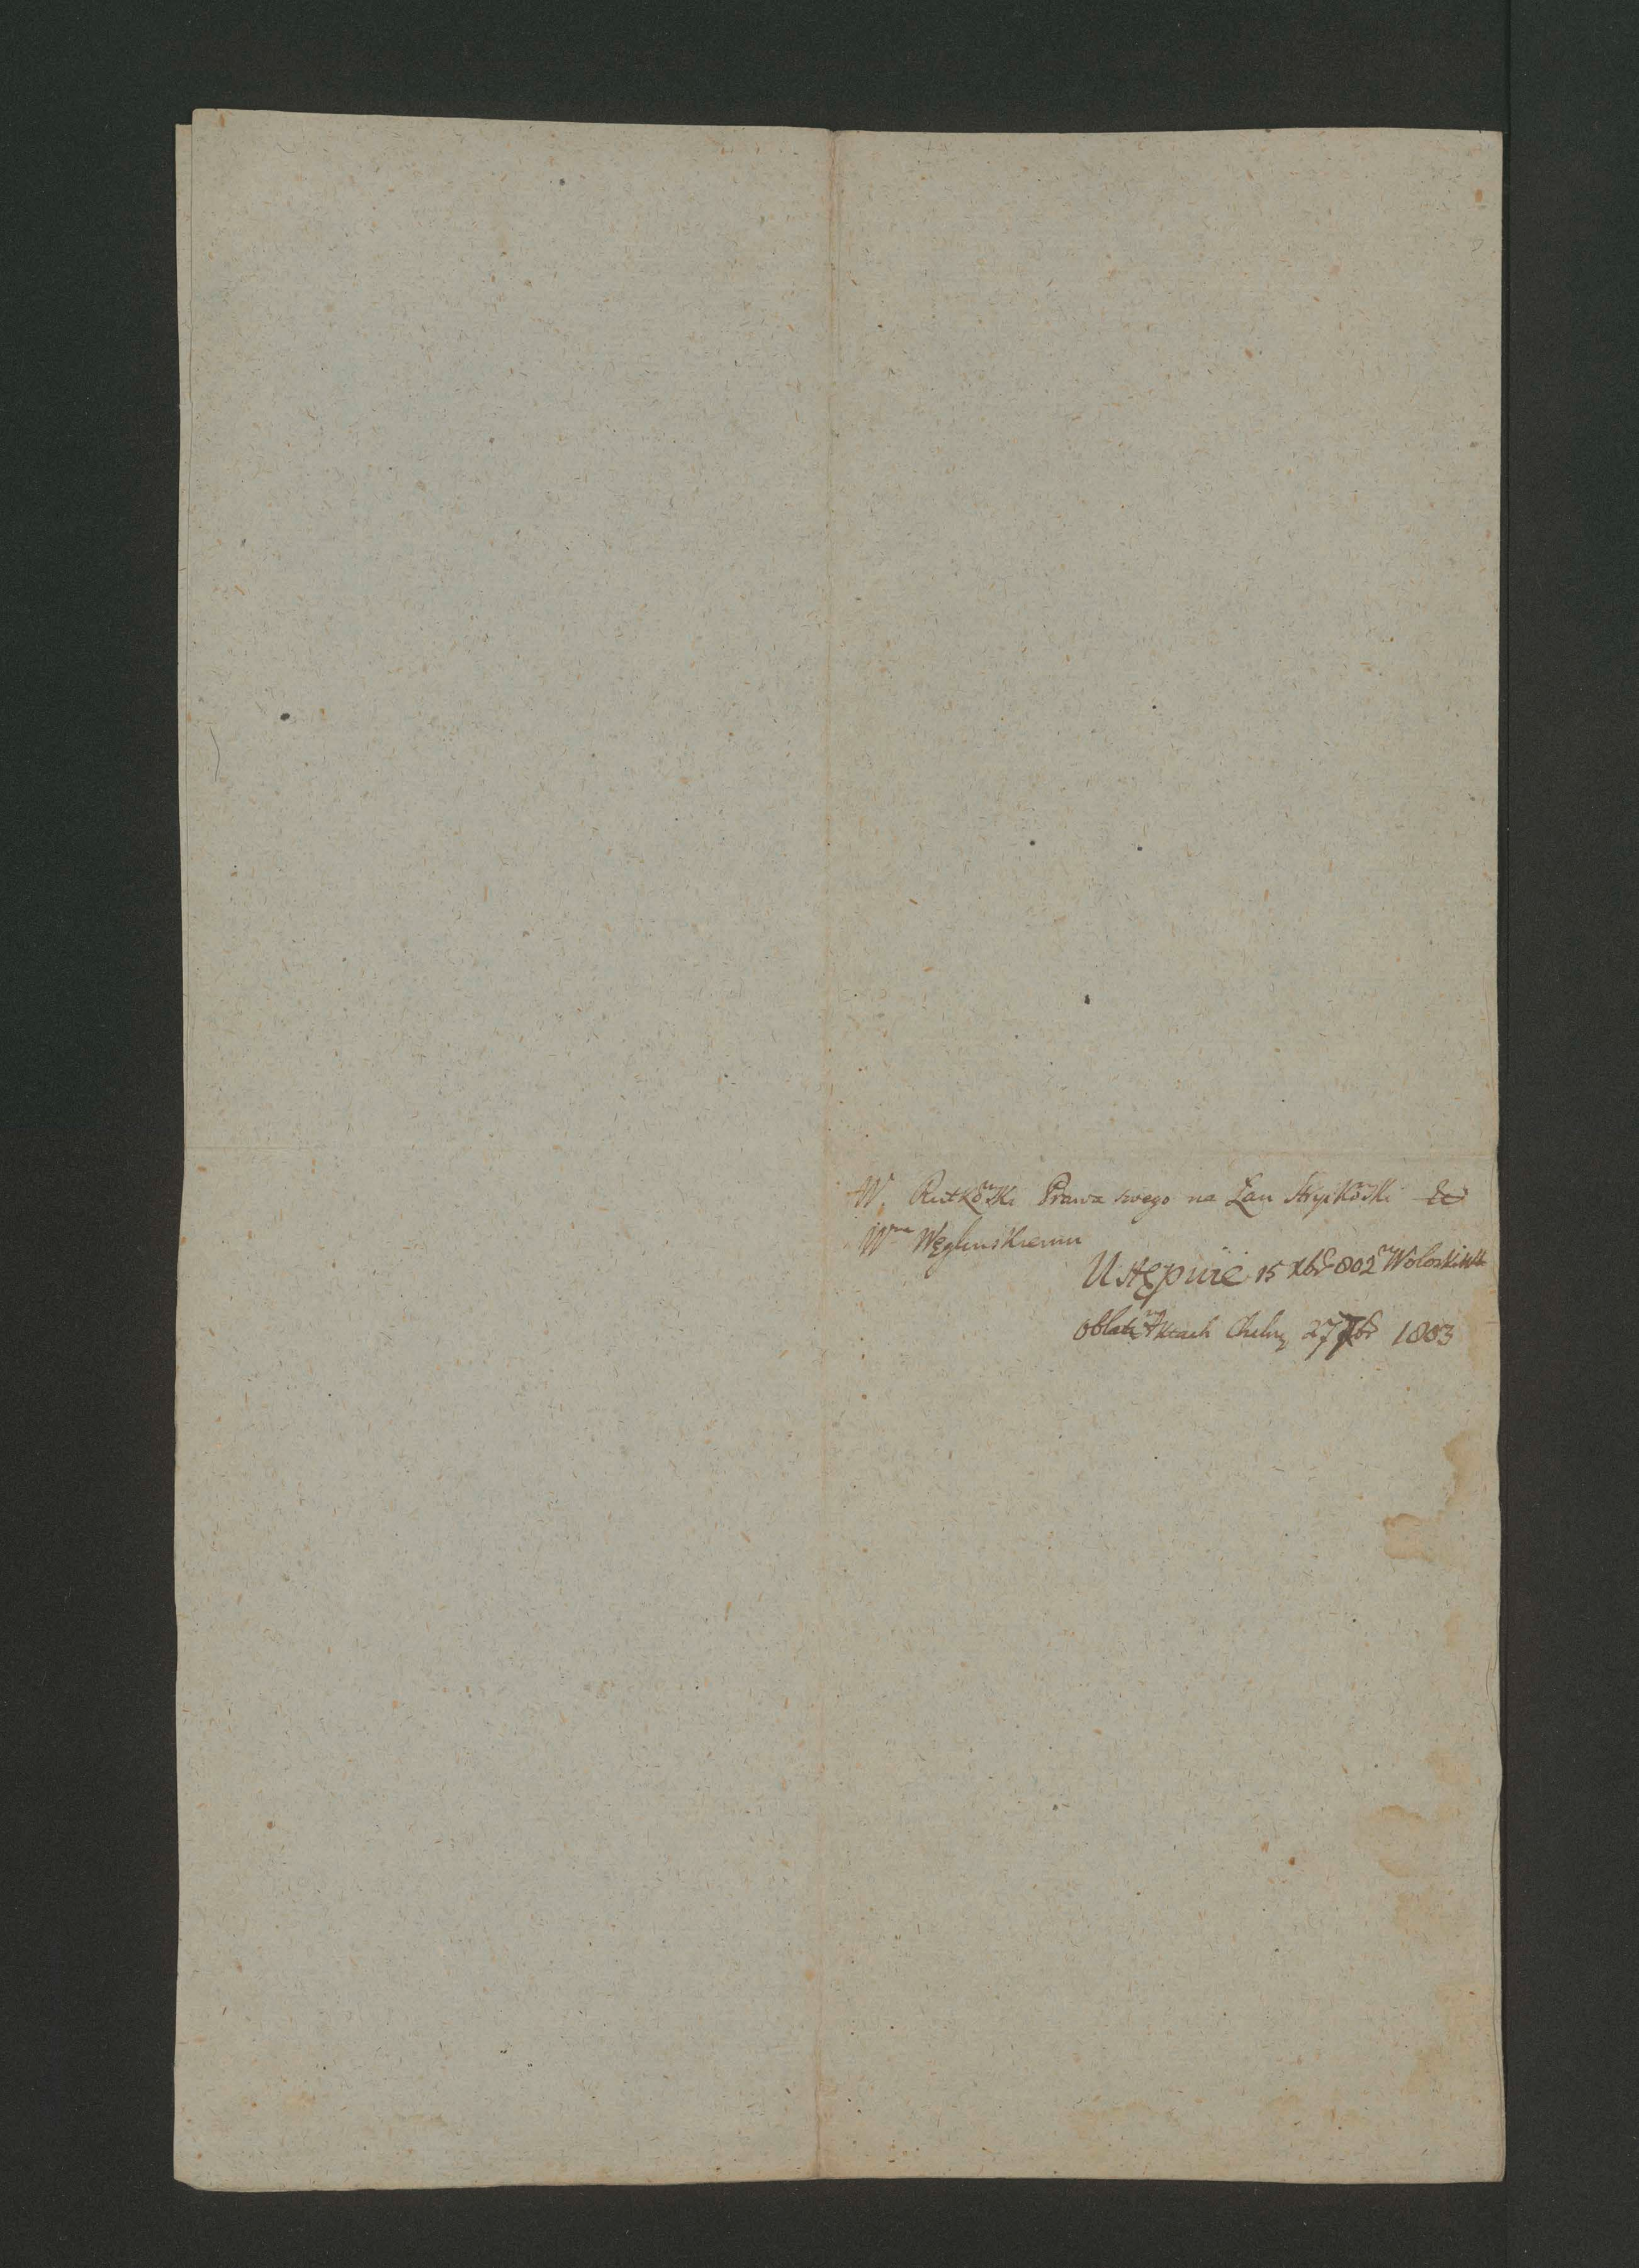 W. Rutkowski Prawa swego na Łan Stryikowski
Wmu Węglinskiemu
Ustępuie 15 Xbr 802
oblata Aktach Chełm 27 Xbr 1803